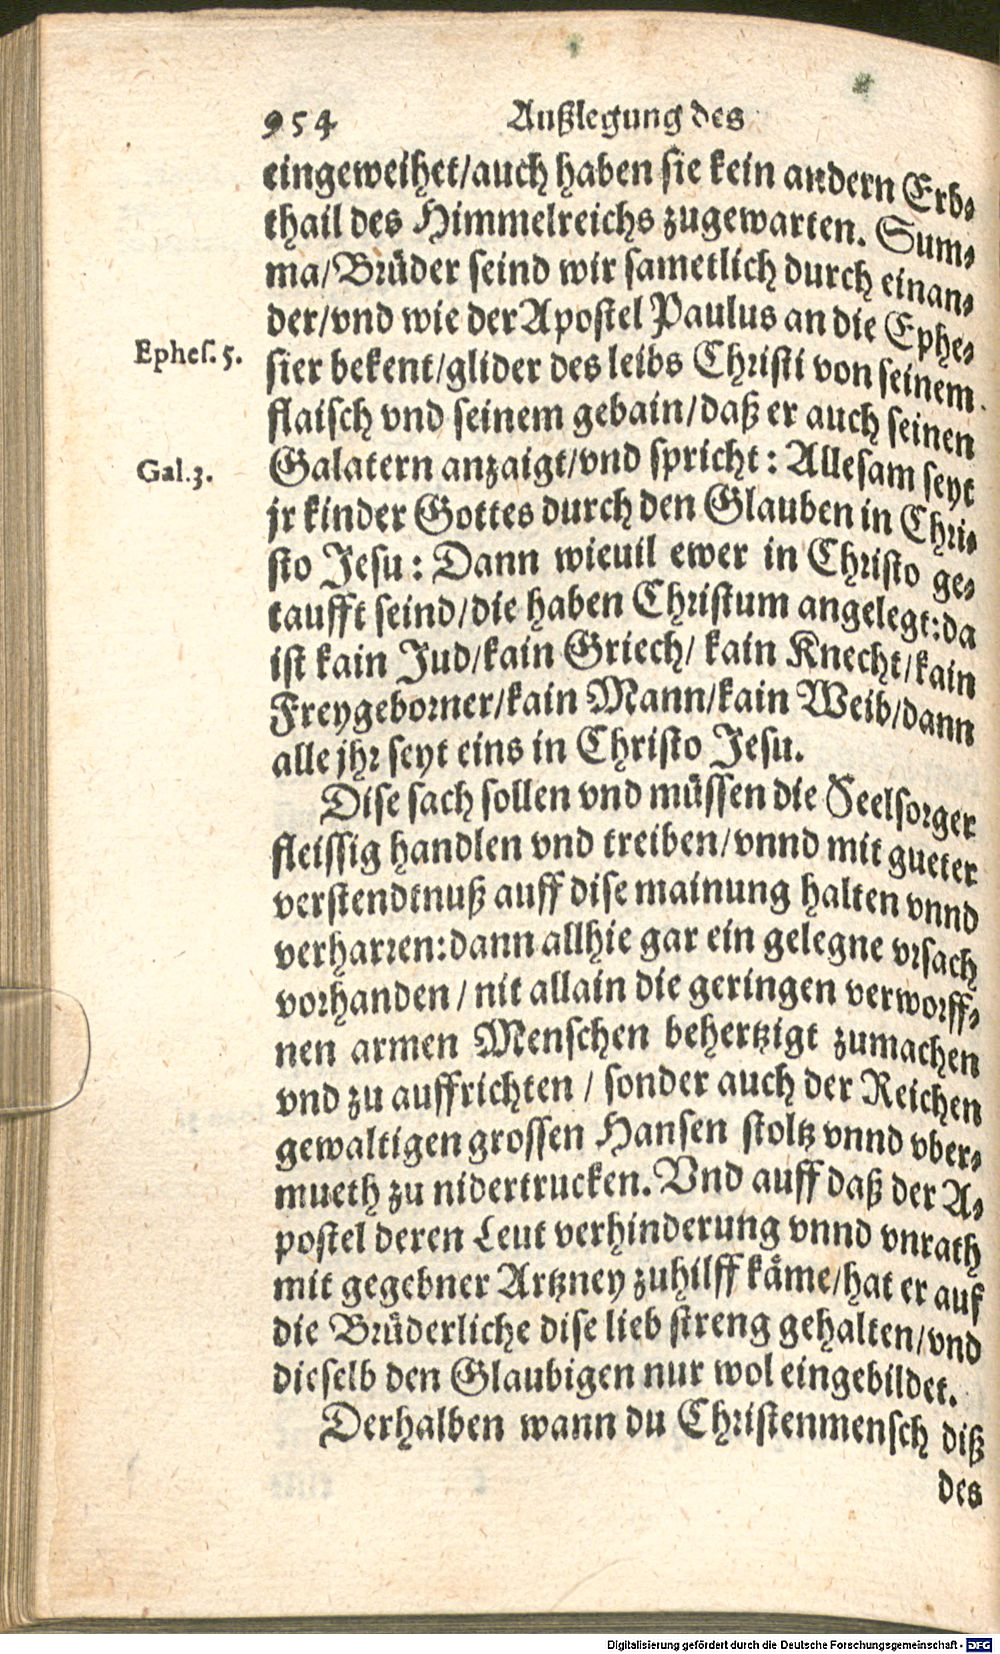 954 Außlegung des
eingeweihet/auch haben sie kein andern Erb⸗
thail des Himmelreichs zugewarten. Sum⸗
ma/Brüder seind wir sametlich durch einan⸗
der/vnd wie der Apostel Paulus an die Ephe⸗
Ephes. 5. sier bekent/glider des leibs Christi von seinem
flaisch vnd seinem gebain/daß er auch seinen
Gal. 3. Galatern anzaigt/vnd spricht: Allesam seyt
jr kinder Gottes durch den Glauben in Chri⸗
sto Jesu: Dann wieuil ewer in Christo ge⸗
taufft seind/die haben Christum angelegt: da
ist kain Jud/kain Griech/ kain Knecht/kain
Freygeborner/kain Mann/kain Weib/dann
alle jhr seyt eins in Christo Jesu.
Dise sach sollen vnd müssen die Seelsorger
fleissig handlen vnd treiben/vnnd mit gueter
verstendtnuß auff dise mainung halten vnnd
verharren: dann allhie gar ein gelegne vrsach
vorhanden / nit allain die geringen verworff⸗
nen armen Menschen behertzigt zumachen
vnd zu auffrichten / sonder auch der Reichen
gewaltigen grossen Hansen stoltz vnnd vber⸗
mueth zu nidertrucken. Vnd auff daß der A⸗
postel deren Leut verhinderung vnnd vnrath
mit gegebner Artzney zuhilff käme/hat er auf
die Brüderliche dise lieb streng gehalten/vnd
dieselb den Glaubigen nur wol eingebildet.
Derhalben wann du Christenmensch diß
des
Digitalisierung gefördert durch die Deutsche Forschungsgemeinschaft - DFG